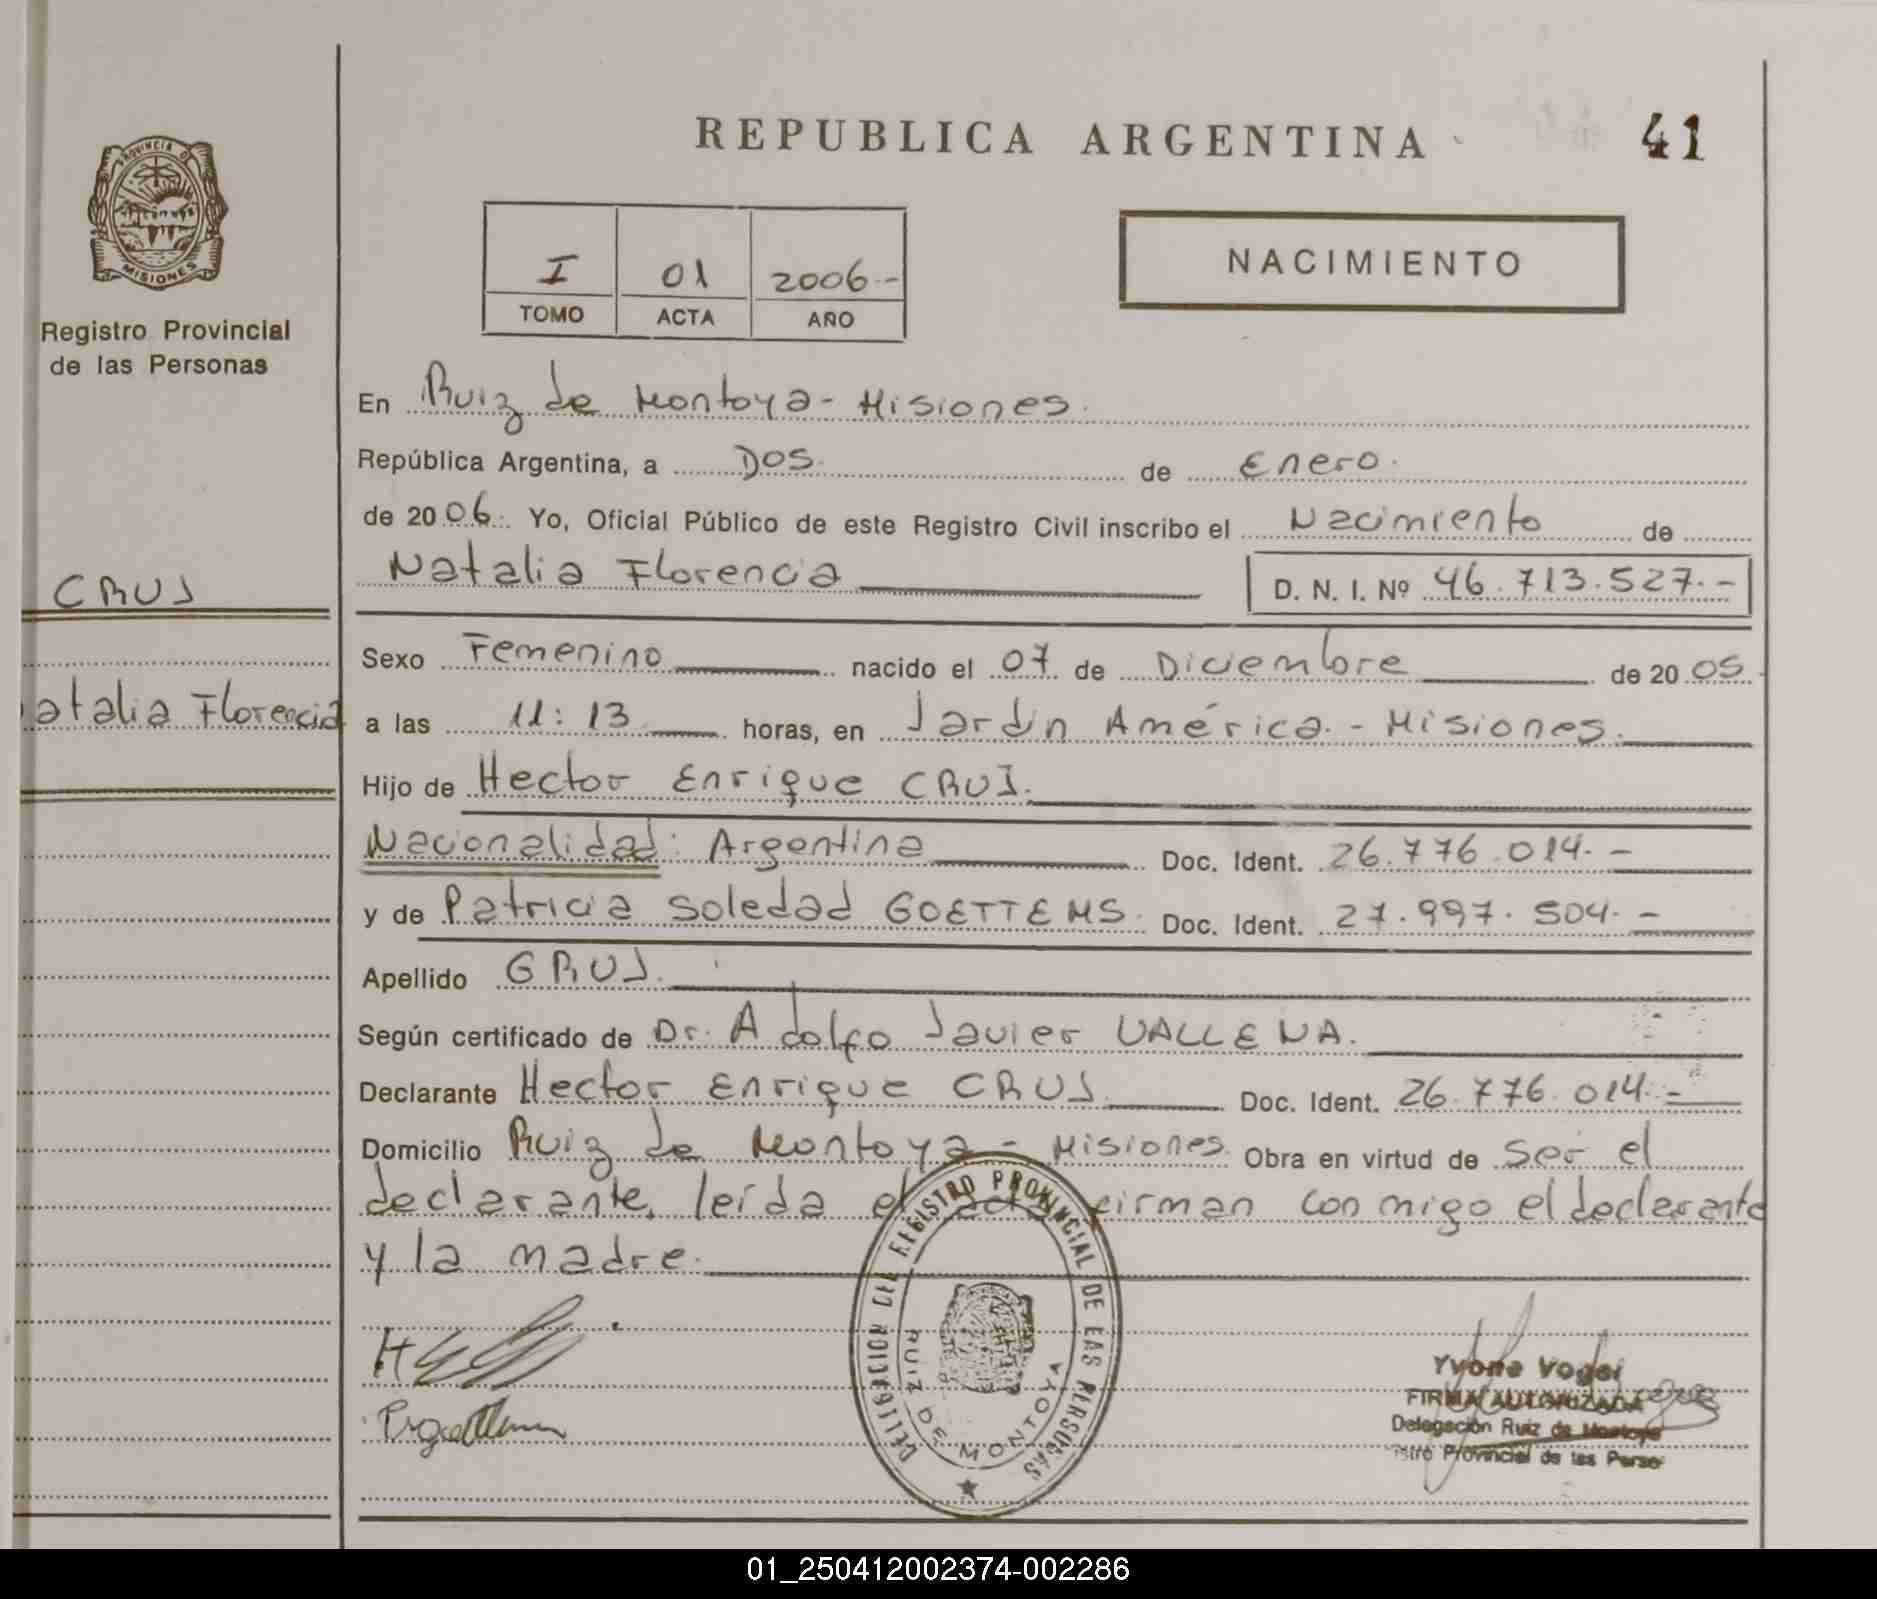 REPUBLICA ARGENTINA
41
PROVINCIA DE
MISIONES
Registro Provincial
de las Personas
I 01 2006.-
TOMO ACTA AÑO
NACIMIENTO
En Ruiz de Montoya - Misiones.
República Argentina, a Dos. de Enero.
de 2006. Yo, Oficial Público de este Registro Civil inscribo el Nacimiento de
Natalia Florencia D. N. I. Nº 46.713.527.-
CRUS
atalia Florencia
Sexo Femenino nacido el 07 de Diciembre de 2005.
a las 11:13 horas, en Jardín América. - Misiones.
Hijo de Hector Enrique CRUS.
Nacionalidad: Argentina Doc. Ident. 26.776.014.-
y de Patricia Soledad GOETTEMS. Doc. Ident. 27.997.504.-
Apellido CRUS.
Según certificado de Dr. Adolfo Javier
Declarante Hector Enrique CRUS. Doc. Ident. 26.776.014.-
Domicilio Ruiz de Montoya - Misiones. Obra en virtud de ser el
declarante, leída el acta firman conmigo el declarante
y la madre.
DELEGACION DEL REGISTRO PROVINCIAL DE LAS PERSONAS
RUIZ DE MONTOYA
Yvone Vogel
FIRMA AUTORIZADA
Delegación Ruiz de Montoya
istro Provincial de las Perso
01_250412002374-002286